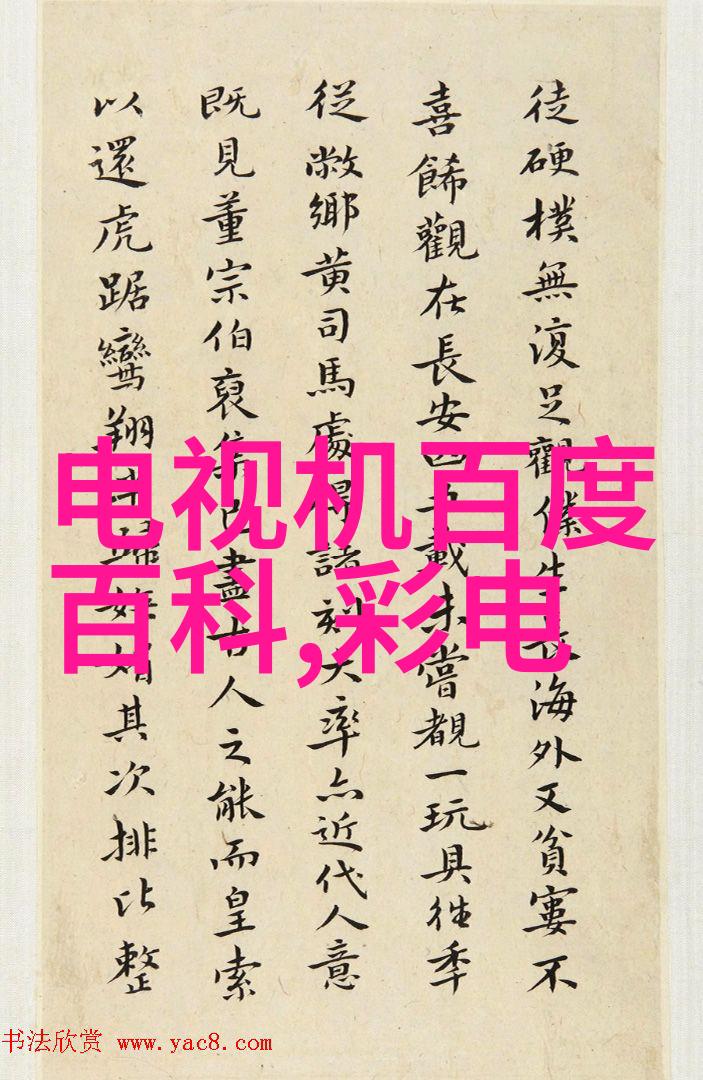 徒硬樸無復足觀僕生長海外又貧窶不
喜餙觀在長安四五載未嘗覩一玩具往季
從敝鄉黄司馬處得諸刻大率亦近代人意
既見董宗伯裒集已盡古人之能而皇索
以還虎踞鸞翔其次排比整
电视机百度
百科,彩电
书法欣赏 www.yac8.com